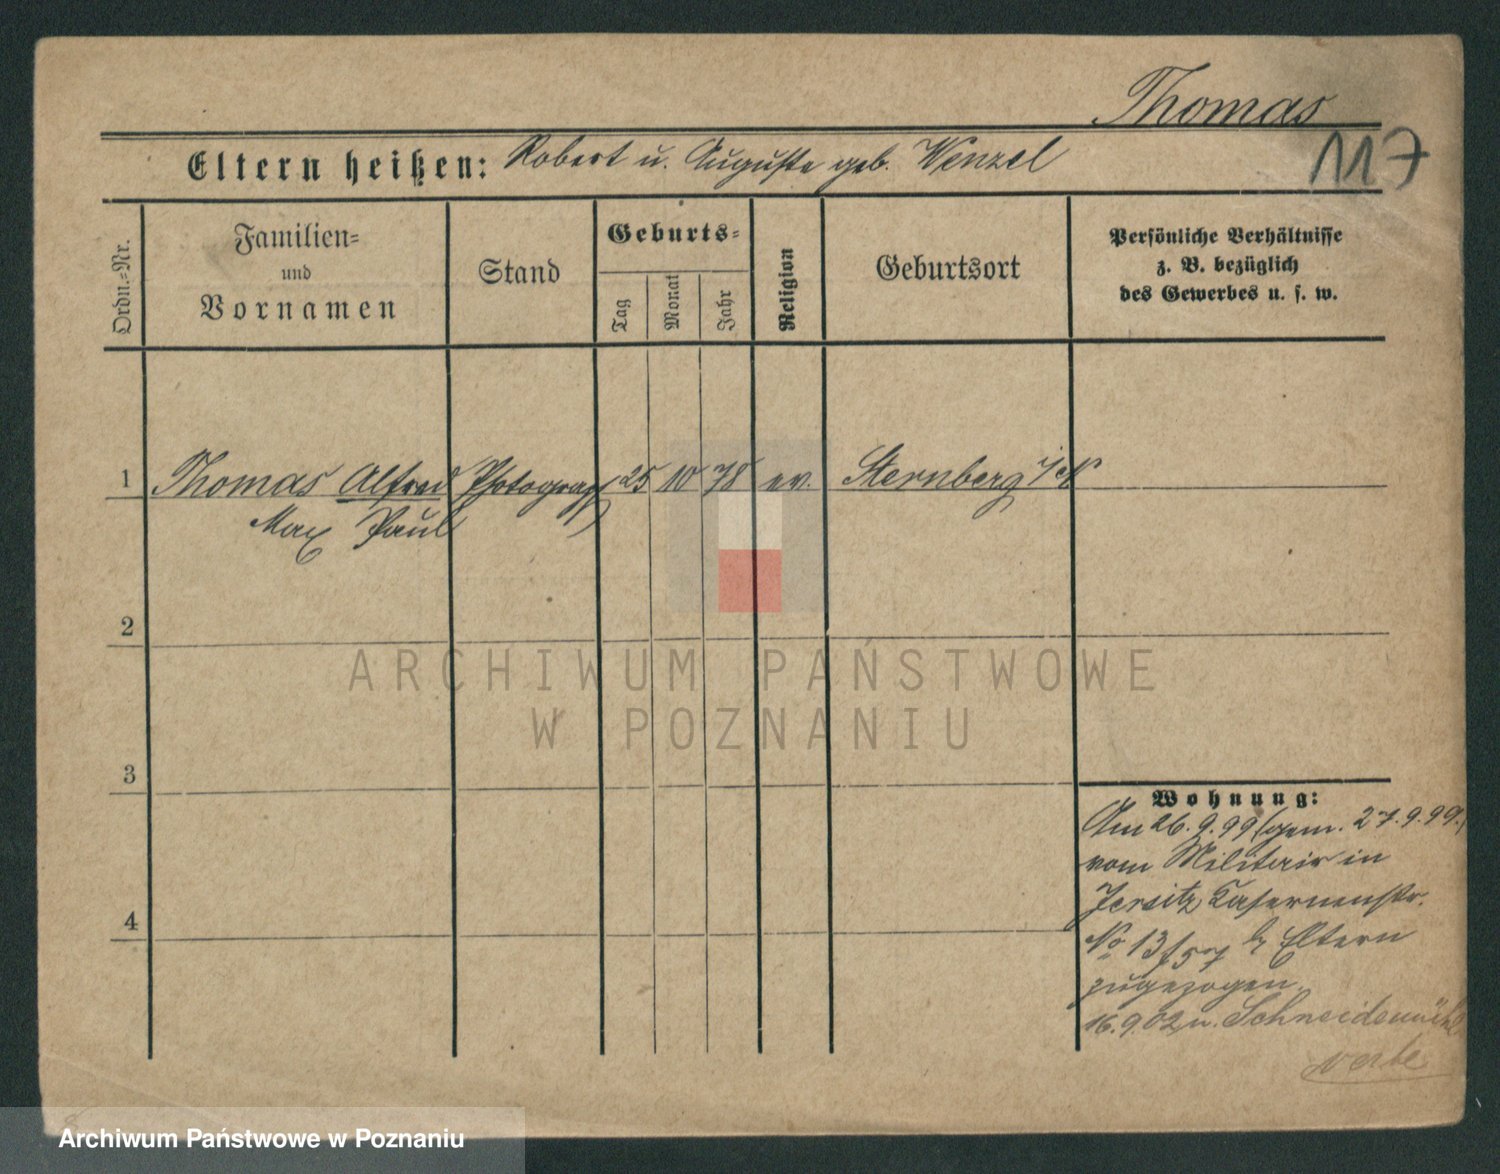 Thomas
117
Eltern heißen: Robert u. Auguste geb. Wenzel
Ordn.-Nr.
Familien-
und
Vornamen
Stand
Geburts-
Tag
Monat
Jahr
Religion
Geburtsort
Persönliche Verhältnisse
z. B. bezüglich
des Gewerbes u. s. w.
1 Thomas Alfred Photograph 25 10 78 ev. Sternberg i/N
Max Paul
2
3
4
ARCHIWUM PAŃSTWOWE
W POZNANIU
Wohnung:
Am 26.9.99 (gem. 27.9.99.)
vom Militair in
Jersitz Kasernenstr.
No 13/57 b/ Eltern
zugezogen.
16.9.02 n. Schneidemühl
Archiwum Państwowe w Poznaniu